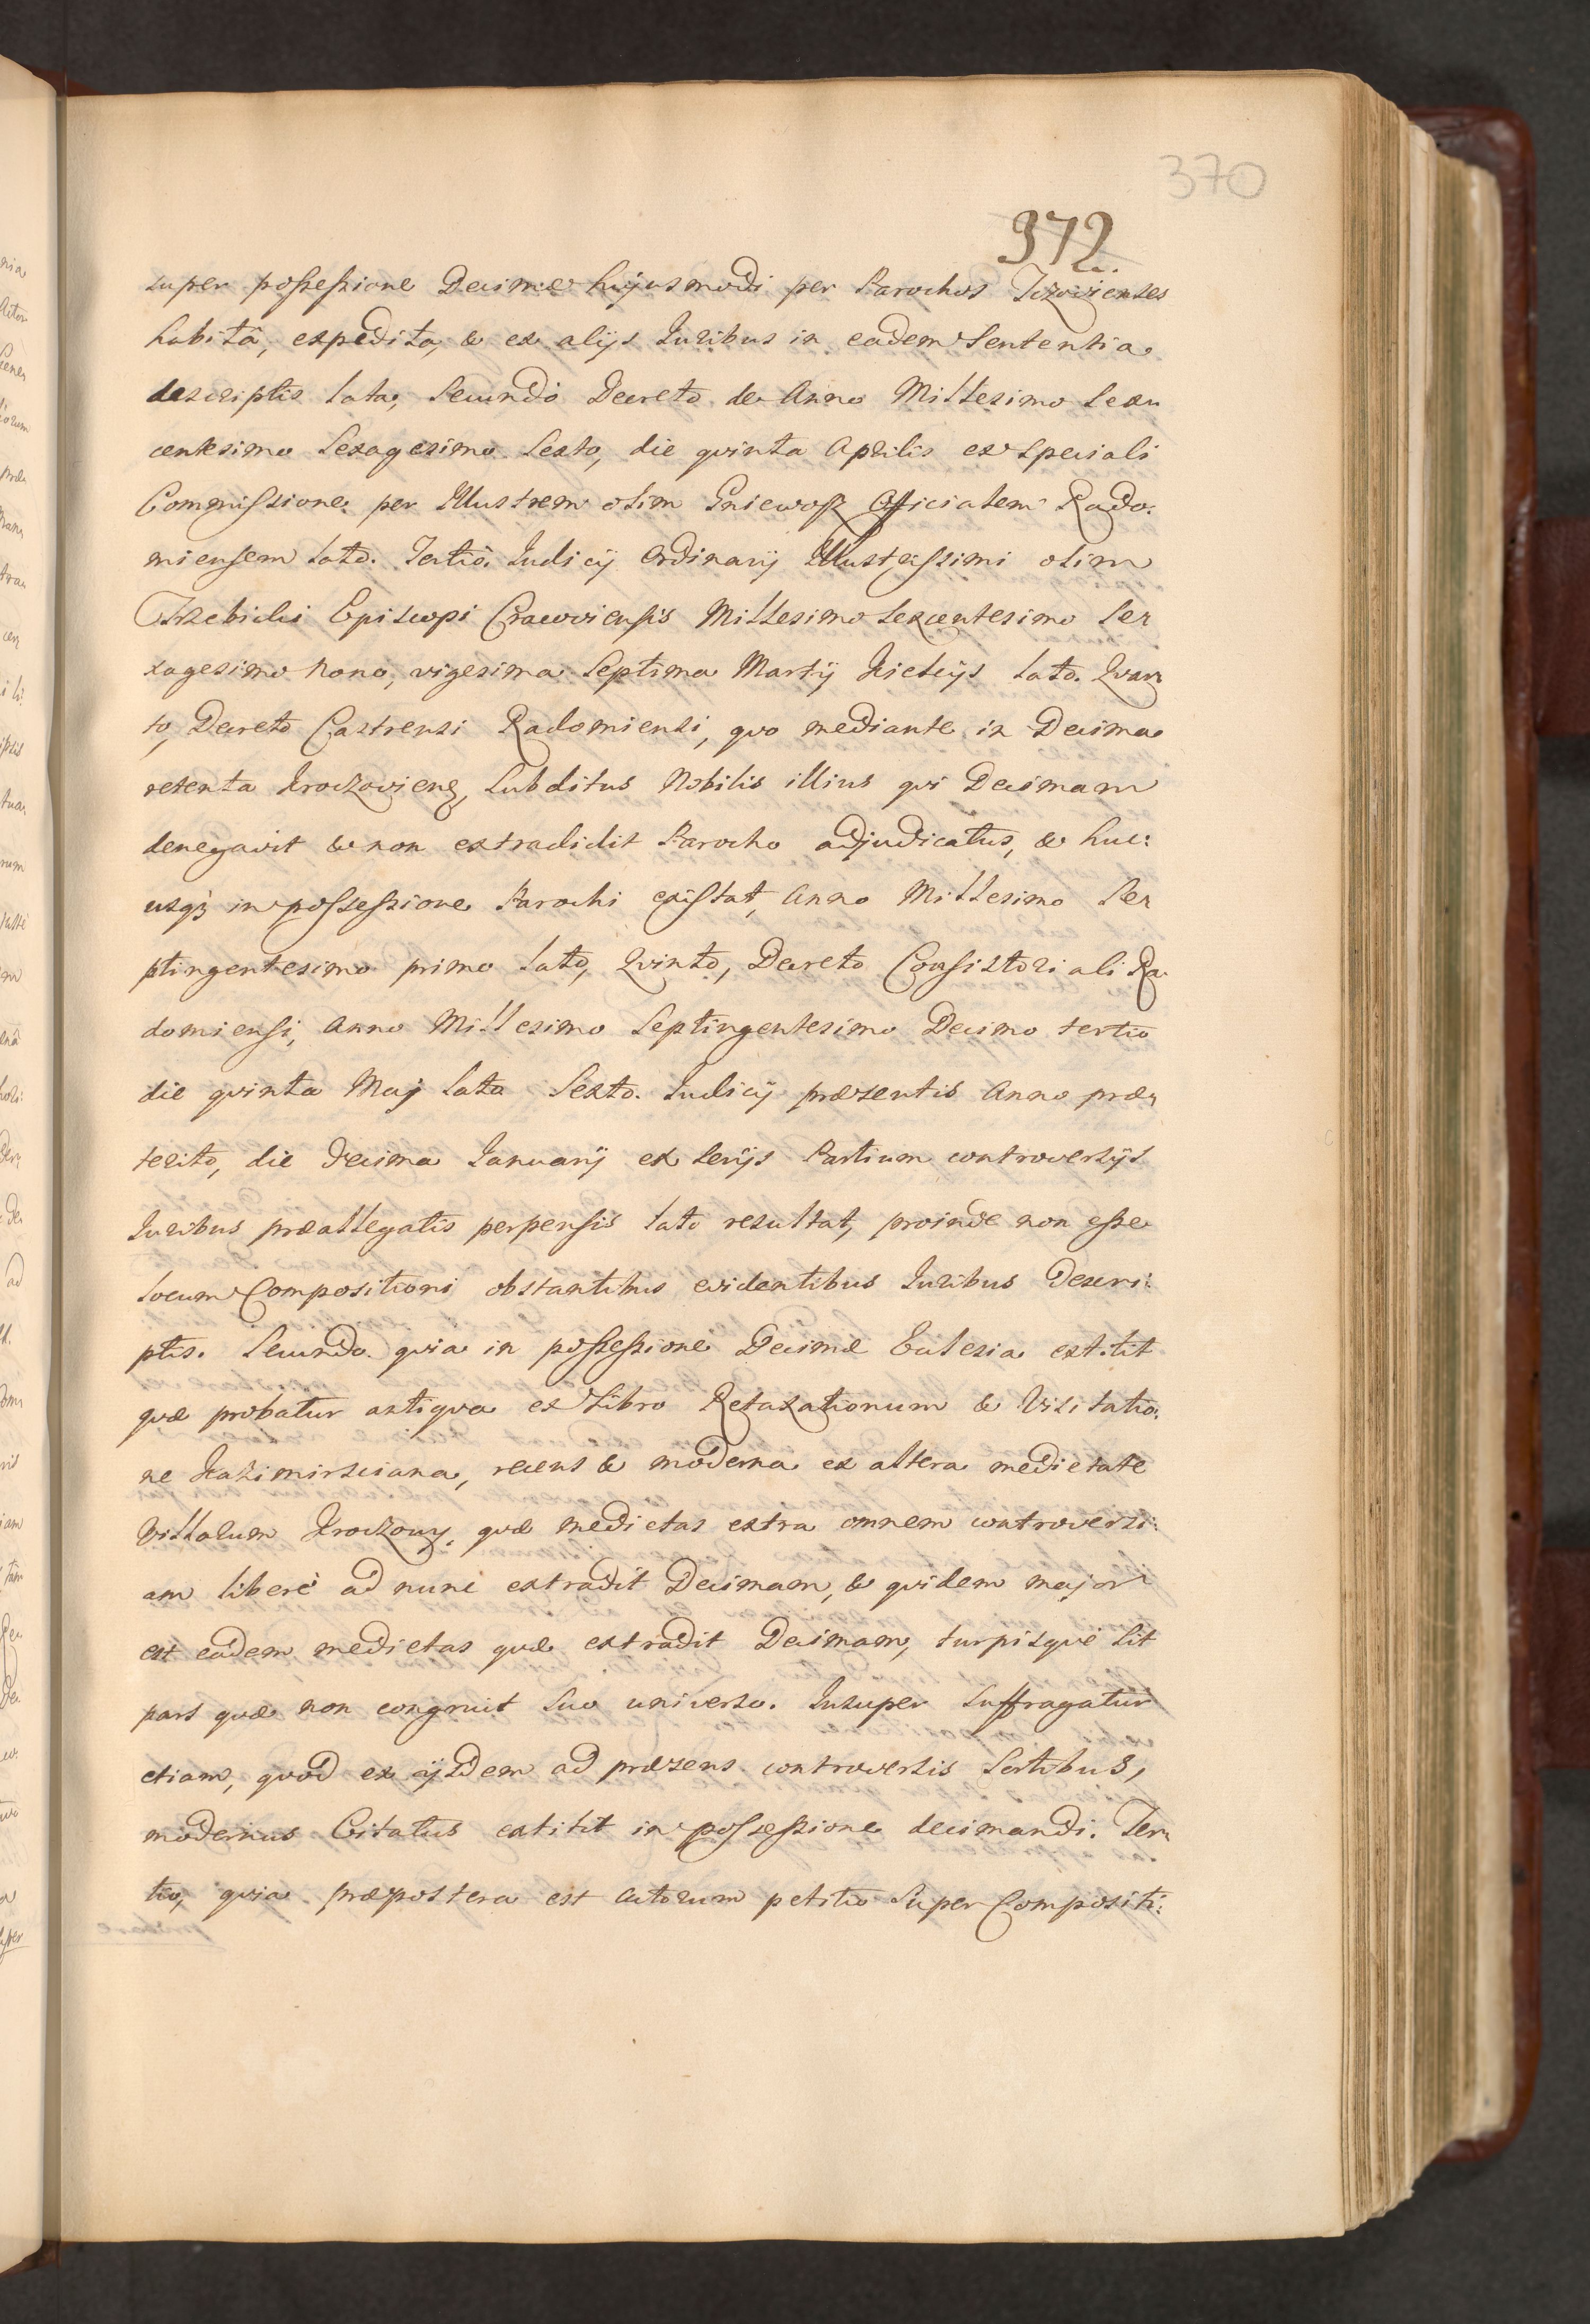 370
372.
super possessione Decimæ hujusmodi per Parochos Jczowienses
habitâ, expedita, & ex alijs Iuribus in eadem Sententia
descriptis lata, Secundò Decreto de Anno Millesimo Sex
centesimo Sexagesimo Sexto, die qvinta Aprilis ex Speciali
Commissione per Illustrem olim Gniewosz Officialem Rado
miensem lato. Tertiò Iudicij Ordinarij Illustrissimi olim
Trzebicki Episcopi Cracoviensis Millesimo Sexcentesimo Se
xagesimo nono, vigesima Septima Martij Kielcijs lato. Qvar
to, Decreto Castrensi Radomiensi, qvo mediante in Decima
retenta Kroczoviens, Subditus Nobilis illius qvi Decimam
denegavit & non extradidit Parocho adjudicatus, & huc:
usq3 in possessione Parochi existat, Anno Millesimo Se
ptingentesimo primo lato, Qvinto, Decreto Consistoriali Ra
domiensi, Anno Millesimo Septingentesimo Decimo tertio
die qvinta Maij lata Sexto. Iudicij præsentis Anno præ
terito, die Decima Ianuarij ex Serijs Partium controversijs
Iuribus præallegatis perpensis lato resultat, proinde non esse
locum Compositioni obstantibus evidentibus Iuribus Descri:
ptis. Secundo qvia in possessione Decimæ Eclesia extitit
qvæ probatur antiqva ex Libro Retaxationum & Visitatio
ne Kazimirsciana, recens & moderna ex altera medietate
Villarum Kroczowy, qvæ medietas extra omnem controversi:
am liberè ad nunc extradit Decimam, & qvidem major
est eadem medietas qvæ extradit Decimam, turpisqve sit
pars qvæ non congruit Suo universo. Insuper Suffragatur
etiam, qvod ex ijsdem ad præsens controversis Sortibus,
modernus Citatus extitit in possessione decimandi. Ter
tio, qvia præpostera est Actorum petitio Super Compositi: